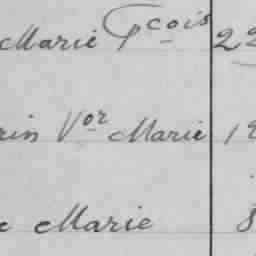 Marie Fcois 22
rin Vor Marie 1
c Marie 8